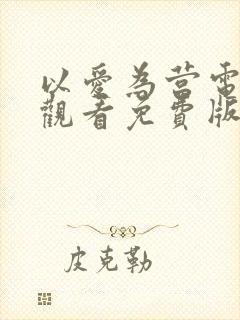 以愛為營電
觀看免費版
皮克勒